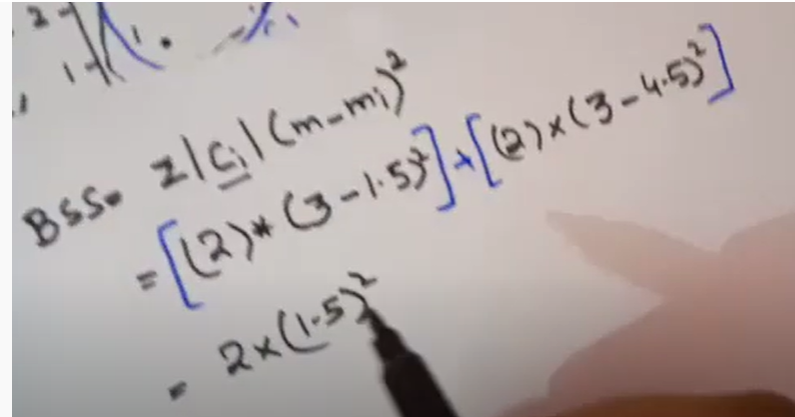 2
1
1
BSS = Σ|Ci|(m-mi)²
= [(2)*(3-1.5)²]+[(2)×(3-4.5)²]
= 2×(1.5)²